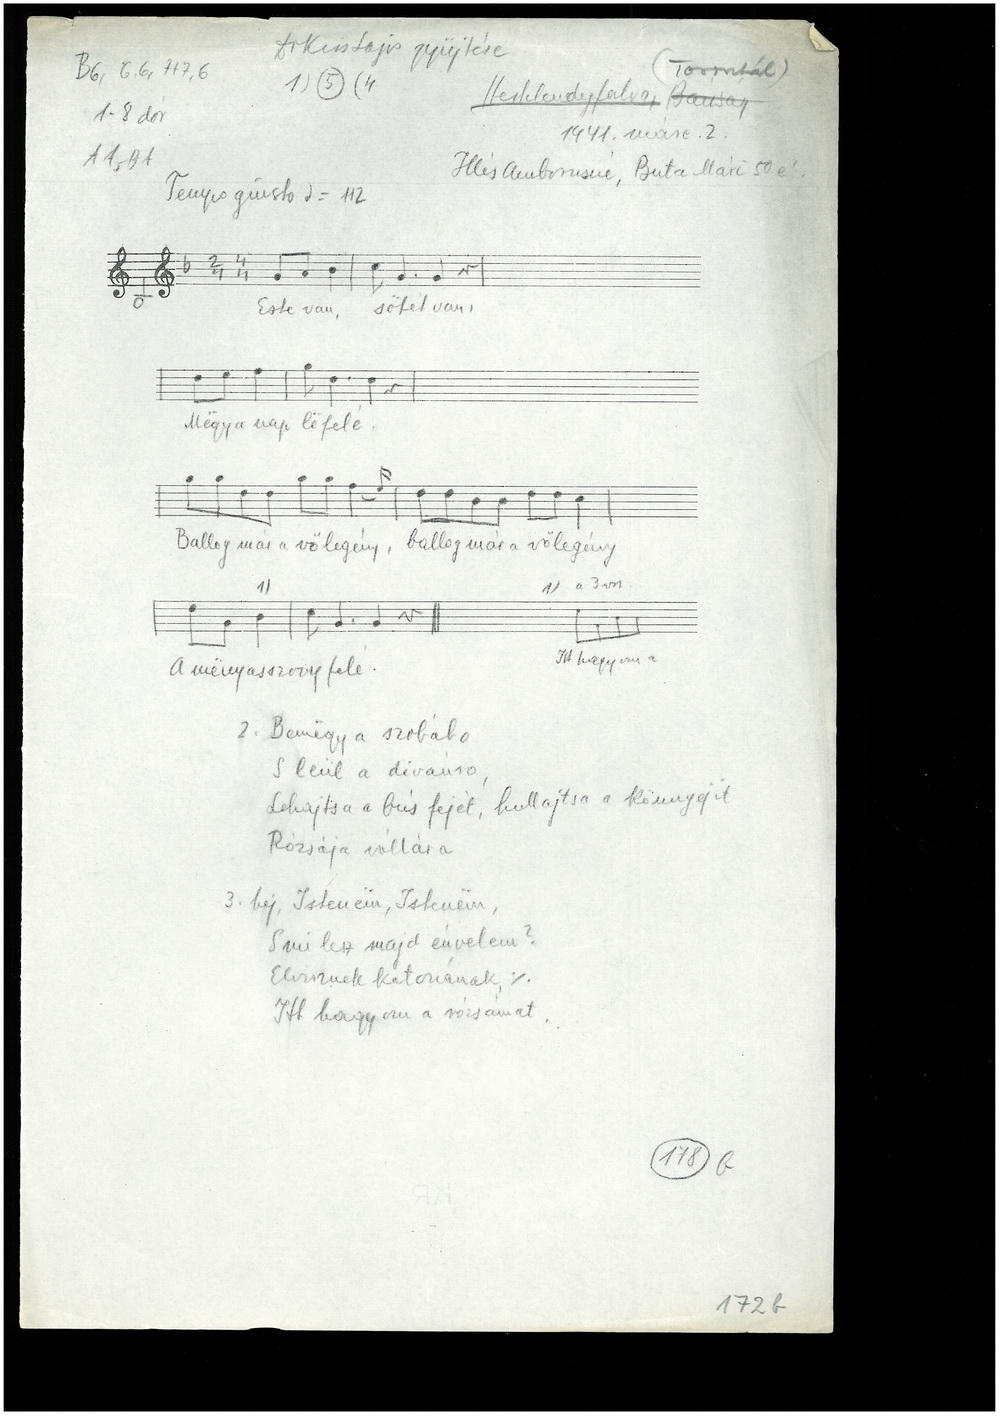 Dr Kiss Lajos gyűjtése
B6, 6.6, 7+7, 6
1) 5 (4
(Torontál)
Hertelendyfalva, Bánság
1-8 dór
1941. márc. 2.
A A5 B A
Illés Ambrusné, Buta Mári 50 é.
Tempo giusto = 112
2 4
4 4
Este van, sötét van,
Mëgy a nap lëfelé.
Ballog már a vőlegény, ballog már a vőlegény
1) 1) a 3 vsz.
A mënyasszony felé. Itt hagyom a
2. Bemëgy a szobábo
S leül a divánro,
Lehajtsa a bús fejét, hullajtsa a könnyejit
Rózsája vállára
3. hej, Istenëm, Istenëm,
S mi lesz majd énvelem?
Elvisznek katonának, ./.
Itt hagyom a rózsámat.
178 b
172 b